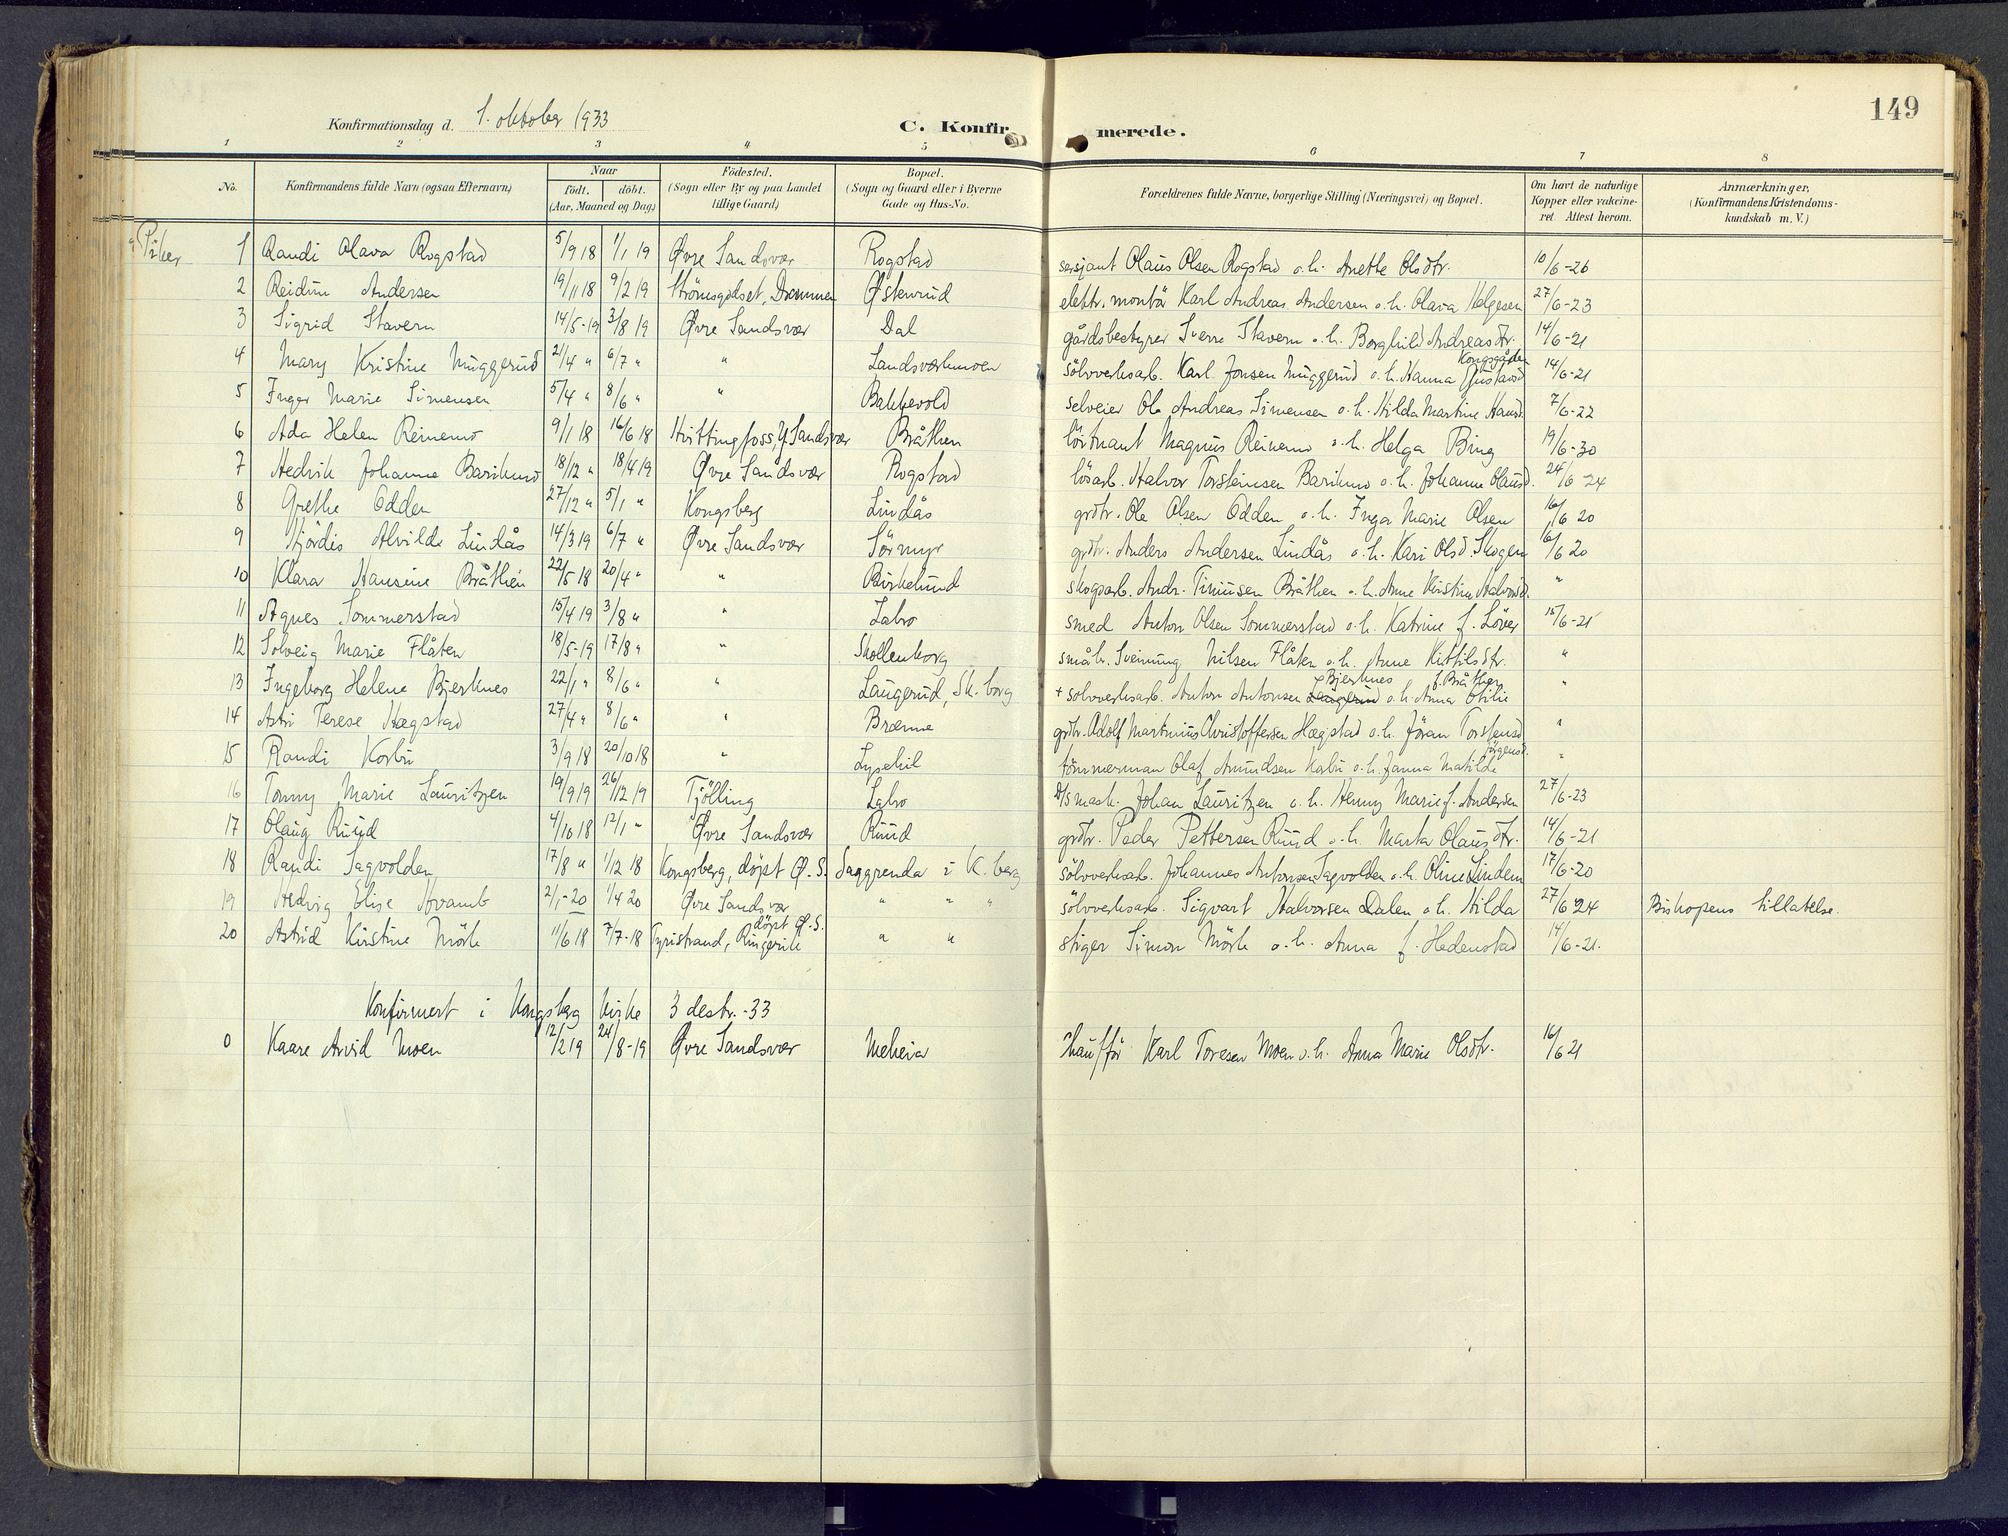 149
Konfirmationsdag d. 1. oktober 1933 C. Konfirmerede.
1 2 3 4 5 6 7 8
No. Konfirmandens fulde Navn (ogsaa Efternavn) Naar födt. döbt. (Aar, Maaned og Dag) Födested. (Sogn eller By og paa Landet tillige Gaard) Bopæl. (Sogn og Gaard eller i Byerne Gade og Hus-No. Forældrenes fulde Navne, borgerlige Stilling (Næringsvei) og Bopæl. Om havt de naturlige Kopper eller vakcineret. Attest herom. Anmærkninger, (Konfirmandens Kristendomskundskab m. V.)
Piker 1 Randi Olava Rogstad 5/9 18 1/1 19 Øvre Sandsvær Rogstad sersjant Olaus Olsen Rogstad o.h. Anethe Olsdtr. 10/6-26
2 Reidun Andersen 19/11 18 9/2 19 Strömsgodset, Drammen Østenrud elektr. montör Karl Andreas Andersen o.h. Olava Helgesen 27/6-23
3 Sigrid Stavern 14/5-19 3/8 19 Øvre Sandsvær Dal gårdsbestyrer Sverre Stavern o.h. Borghild Andreasdtr. 14/6-21
4 Mary Kristine Muggerud 21/4 " 6/7 " " Landsverkmoen sölvverksarb. Karl Jonsen Muggerud o.h. Hanna Gustavsd Kongsgården 14/6-21
5 Inger Marie Simensen 5/4 " 8/6 " " Bakkevold selveier Ole Andreas Simensen o.h. Hilda Martine Hansd. 7/6-22
6 Ada Helen Reinemo 9/1 18 16/6 18 Hvittingfoss, Y. Sandsvær Bråthen löitnant Magnus Reinemo o.h. Helga Bing 19/6-30
7 Hedvik Johanne Barikmo 18/12 " 18/4 19 Øvre Sandsvær Rogstad lösarb. Halvor Torsteinsen Barikmo o.h. Johanne Olausd. 24/6-24
8 Grethe Odden 27/12 " 5/1 " Kongsberg Lindås grdtr. Ole Olsen Odden o.h. Inga Marie Olsen 16/6 20
9 Hjördis Alvilde Lindås 14/3 19 6/7 " Øvre Sandsvær Sörmyr grdtr. Anders Andersen Lindås o.h. Kari Olsd. Skogen 16/6 20
10 Klara Hansine Bråthen 22/5 18 20/4 " " Birkelund skogsarb. Andr. Timiisen Bråthen o.h. Anne Kristine Halvorsd. "
11 Agnes Sommerstad 15/4 19 3/8 " " Labro smed Anton Olsen Sommerstad o.h. Katrine f. Löver 15/6-21
12 Solveig Marie Flåten 18/5-19 17/8 " " Skollenborg småbr. Sveinung Nilsen Flåten o.h. Anne Kittilsdtr. "
13 Ingeborg Helene Bjerknes 22/1 " 8/6 " " Laugerud, Sk.borg + sölvverksarb. Anton Antonsen Laugerud Bjerknes o.h. Anna Otilie f. Bråthen "
14 Astri Terese Hægstad 27/4 " 8/6 " " Brænne grdtr. Adolf Martinius Christoffersen Hægstad o.h. Jöran Torstensd "
15 Randi Korbu 3/9 18 20/10 18 " Lysehil tömmerman Olaf Amundsen Kabu o.h. Janna Matilde Jörgensd. "
16 Tonny Marie Lauritzen 19/9 19 26/12 19 Tjölling Labro D/S mask. Johan Lauritzen o.h. Henny Marie f. Andersen 27/6-23
17 Olaug Ruud 4/10 18 12/1 " Øvre Sandsvær Ruud grdtr. Peder Pettersen Ruud o.h. Marta Olausdtr. 14/6-21
18 Randi Sagvolden 17/8 " 1/12 18 Kongsberg, döpt Ø.S. Saggrenda i K.berg sölvverksarb. Johannes Antonsen Sagvolden o.h. Oline Lindem 17/6-20
19 Hedvig Elise Hvamb 2/1-20 1/4 20 Øvre Sandsvær " " " sölvverksarb. Sigvart Halvorsen Dalen o.h. Hilda 27/6 24 Biskopens tillatelse.
20 Astrid Kristine Mörk 11/6 18 7/7-18 Tyristrand, Ringerik döpt Ø.S. " " stiger Simon Mörk o.h. Anna f. Hedenstad 14/6-21.
Konfirmert i Kongsberg kirke 3 desbr. -33
0 Kaare Arvid Moen 12/2 19 24/8-19 Øvre Sandsvær Meheia Chaufför Karl Toresen Moen o.h. Anna Marie Olsdtr. 16/6 21